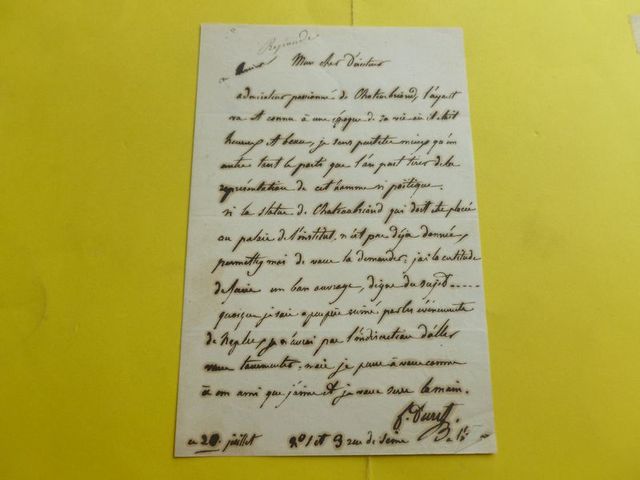 Répondu
Mon cher Directeur
admirateur passionné de Chateaubriand, l'ayant
vu et connu à une époque de sa vie où il était
heureux et beau, je sens peut-être mieux qu'un
autre tout le parti que l'on peut tirer de la
représentation de cet homme si poétique.
si la statue de Chateaubriand qui doit être placée
au palais de l'institut n'est pas déjà donnée,
permettez moi de vous la demander; j'ai la certitude
de faire un bon ouvrage, digne du sujet.....
quoique je sois à peu près ruiné par les événements
de Naples, je n'aurai pas l'indiscrétion d'aller
vous tourmenter, mais je pense à vous comme
à un ami que j'aime et je vous serre la main.
f. Duret
ce 20 juillet nº 1 et 3 rue de Seine